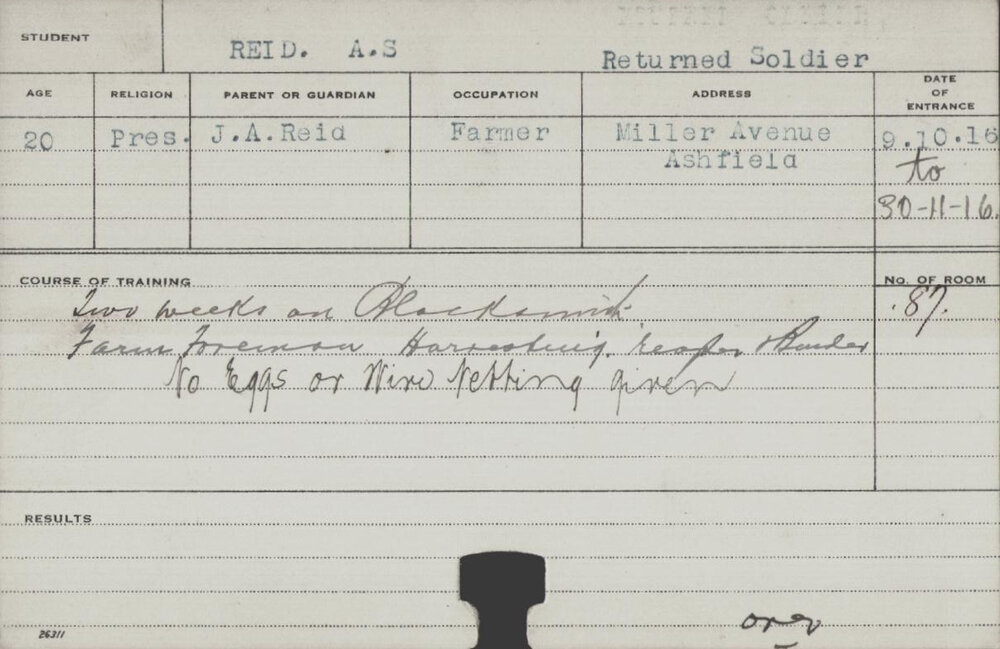 STUDENT
REID. A.S
Returned Soldier
AGE RELIGION PARENT OR GUARDIAN OCCUPATION ADDRESS DATE OF ENTRANCE
20 Pres. J.A.Reid Farmer Miller Avenue 9.10.16
Ashfield to
30-11-16.
COURSE OF TRAINING No. OF ROOM
Two weeks on Blacksmith 87.
Farm Foreman Harvesting. reaper & Binder
No Eggs or Wire Netting given
RESULTS
26311
over